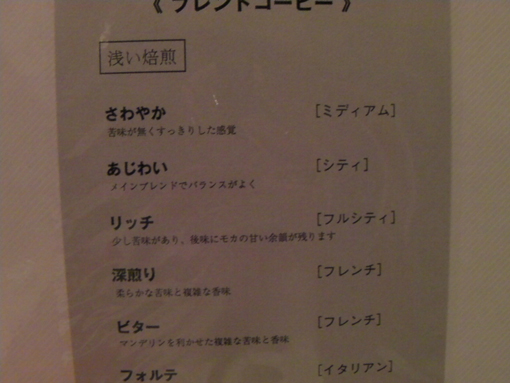 《 ブレンドコーヒー 》
浅い焙煎
さわやか [ミディアム]
苦味が無くすっきりした感覚
あじわい [シティ]
メインブレンドでバランスがよく
リッチ [フルシティ]
少し苦味があり、後味にモカの甘い余韻が残ります
深煎り [フレンチ]
柔らかな苦味と複雑な香味
ビター [フレンチ]
マンデリンを利かせた複雑な苦味と香味
フォルテ [イタリアン]